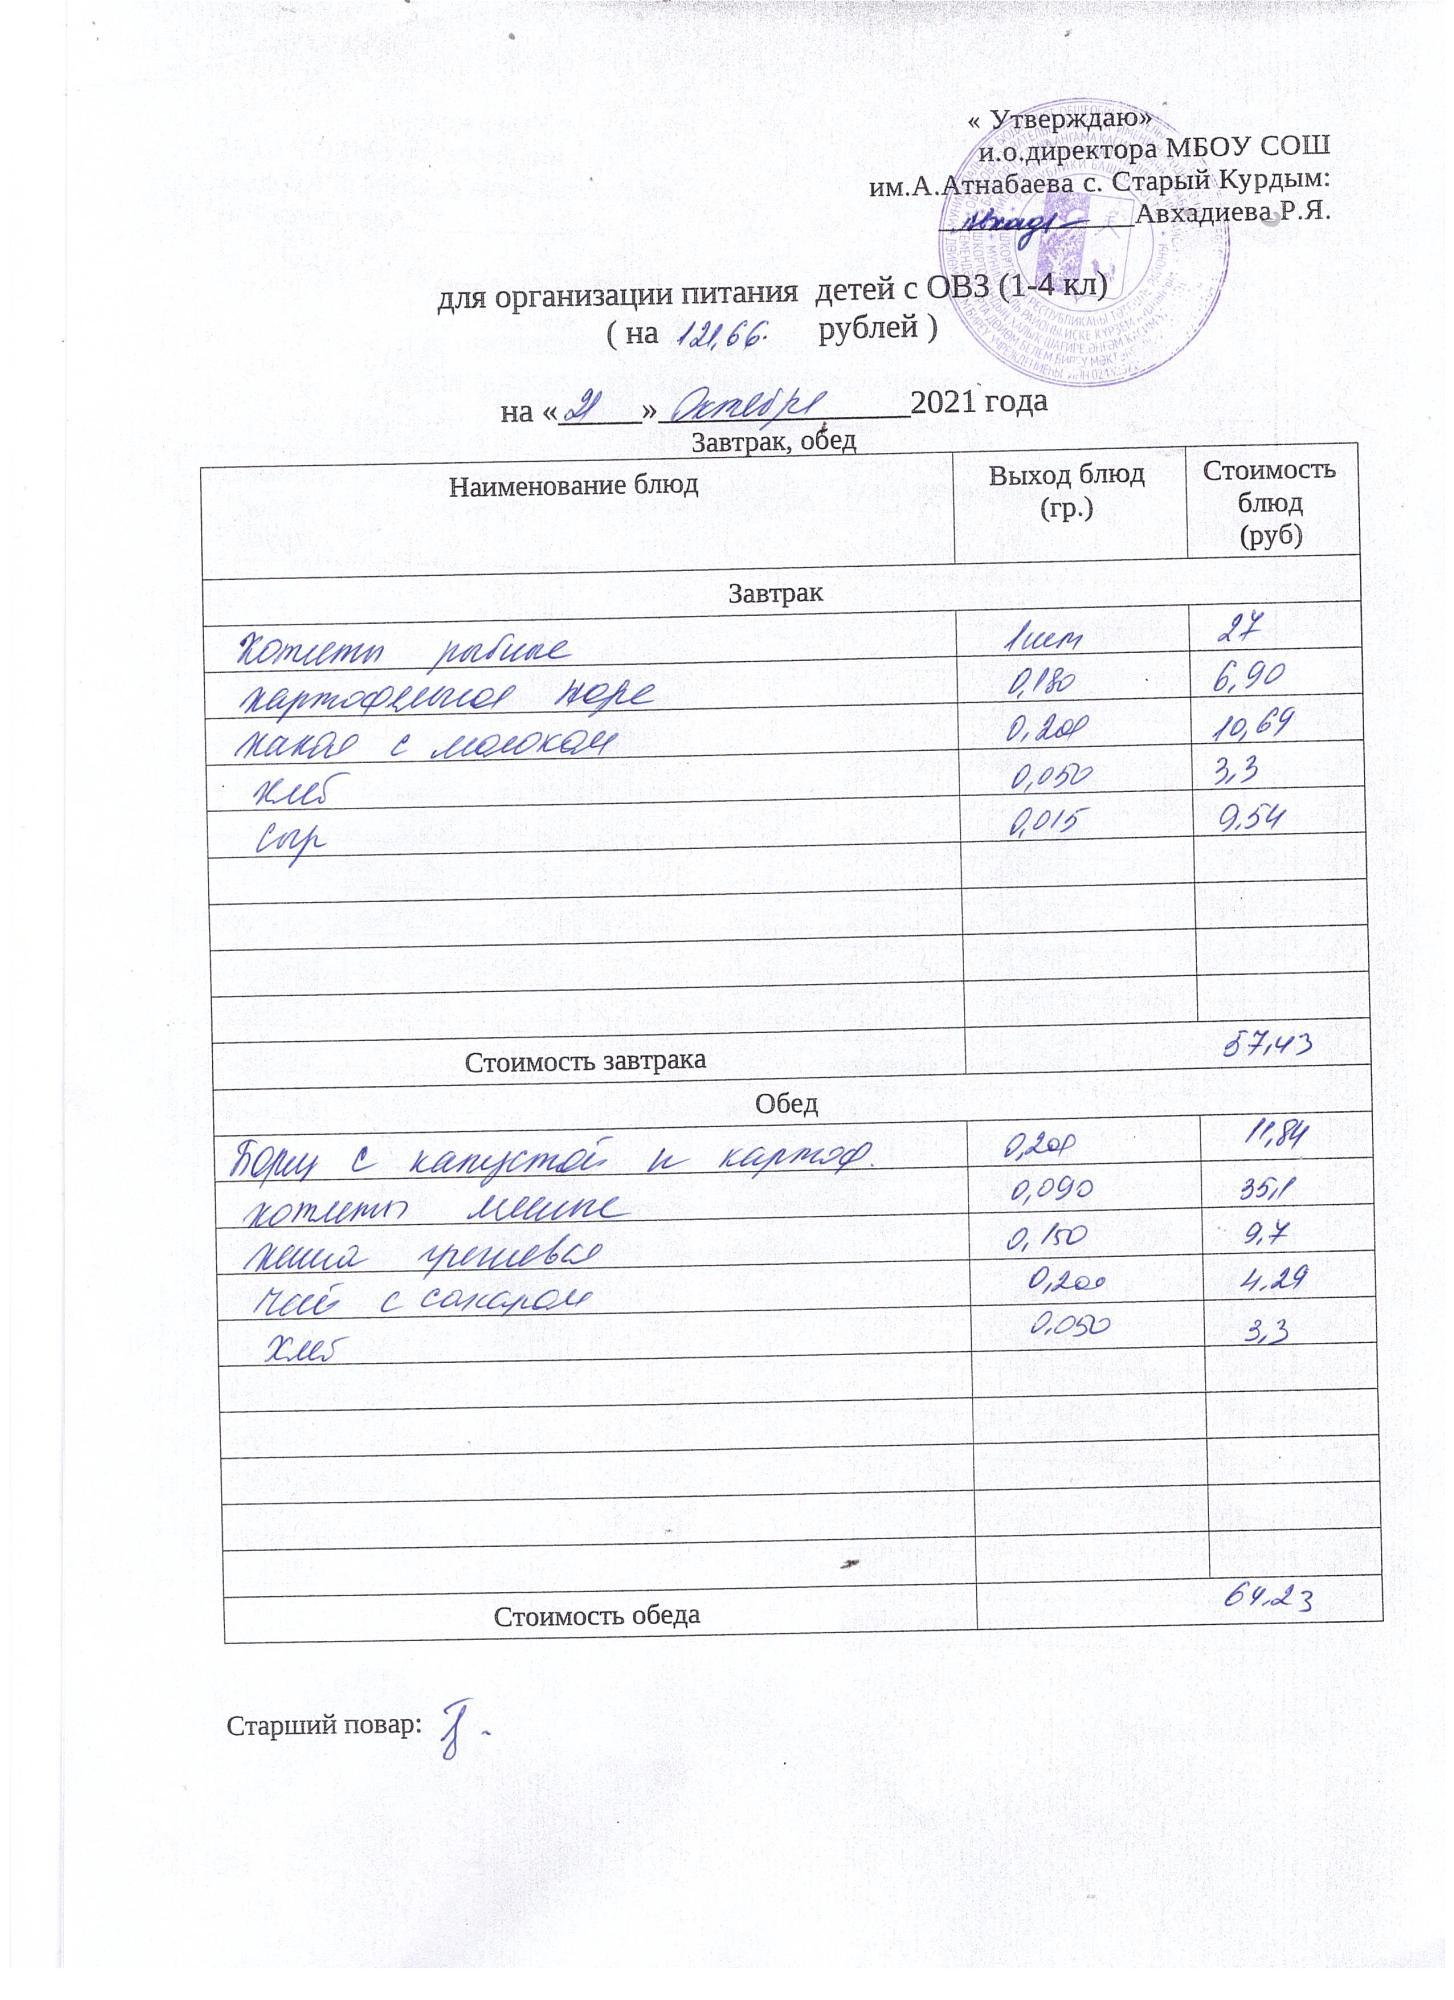 « Утверждаю»
и.о.директора МБОУ СОШ
им.А.Атнабаева с. Старый Курдым:
Авхадиева Р.Я.
для организации питания детей с ОВЗ (1-4 кл)
( на 121,66. рублей )
на « 21 » Октября 2021 года
Завтрак, обед
Наименование блюд Выход блюд (гр.) Стоимость блюд (руб)
Завтрак
Котлеты рыбные 1 шт 27
Картофельное пюре 0,180 6,90
Какао с молоком 0,200 10,69
Хлеб 0,050 3,3
Сыр 0,015 9.54
Стоимость завтрака 57,43
Обед
Борщ с капустой и картоф. 0,200 11,84
котлеты мясные 0,090 35,1
Каша гречневая 0,150 9,7
Чай с сахаром 0,200 4.29
Хлеб 0.050 3,3
Стоимость обеда 64.23
Старший повар: